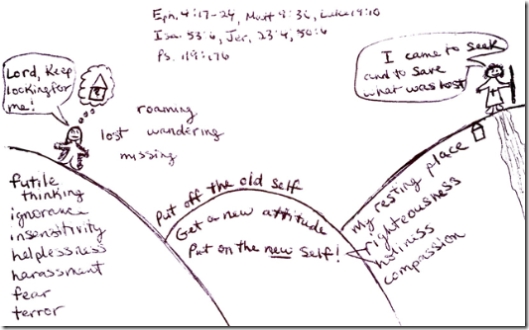 Eph. 4:17-24, Matt 9:36, Luke 19:10
Isa. 53:6, Jer. 23:4, 50:6
Ps. 119:176
Lord, keep
looking for
me!
I came to seek
and to save
what was lost
roaming
lost wandering
missing
futile
thinking
ignorance
insensitivity
helplessness
harassment
fear
terror
Put off the old self
Get a new attitude
Put on the new self!
my resting place
righteousness
holiness
compassion